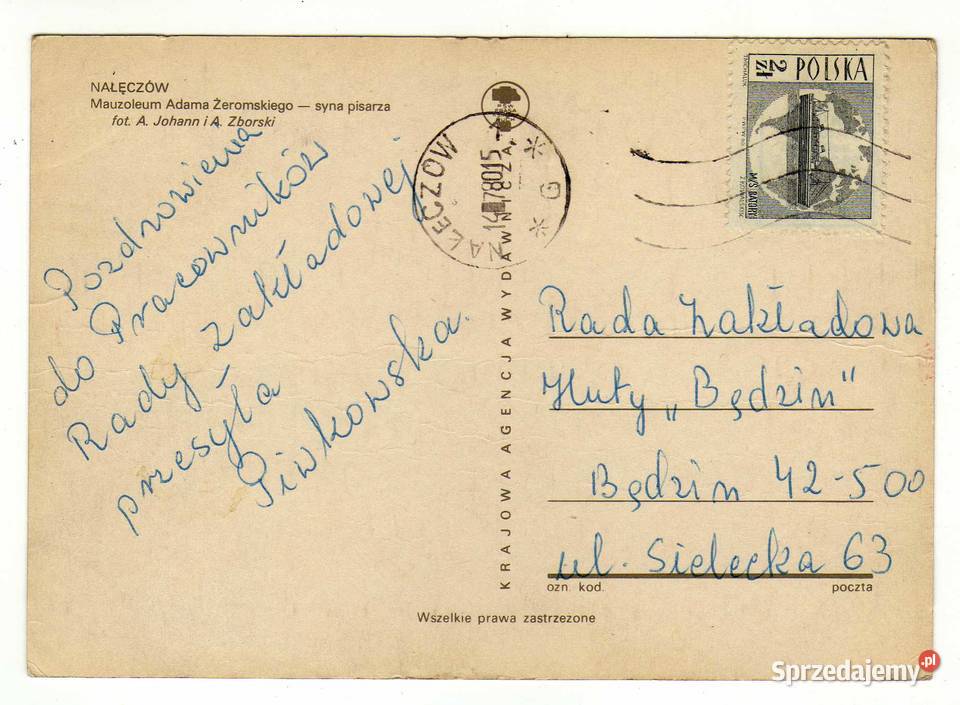 NAŁĘCZÓW
Mauzoleum Adama Żeromskiego — syna pisarza
fot. A. Johann i A. Zborski
Pozdrowienia
do Pracowników
Rady Zakładowej
przesyła
Piwkowska.
KRAJOWA AGENCJA WYDAWNICZA
NAŁĘCZÓW
POLSKA
2 zł
M/S BATORY
Rada Zakładowa
Huty „Będzin"
Będzin 42-500
ul. Sielecka 63
ozn. kod.
poczta
Wszelkie prawa zastrzeżone
Sprzedajemy.pl